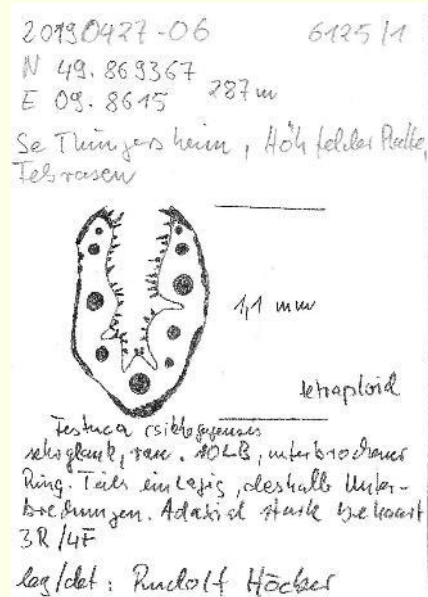 20190427-06 6125/1
N 49.869367
E 09.8615 287m
SE Thüngersheim, Höhfelder Platte,
Felsrasen
1,1 mm
tetraploid
Festuca csikhegyensis
sehr glauk, rau. 10LB, unterbrochener
Ring. Teils einlagig, deshalb Unter-
brechungen. Adaxial stark behaart
3R/4F
leg/det: Rudolf Höcker